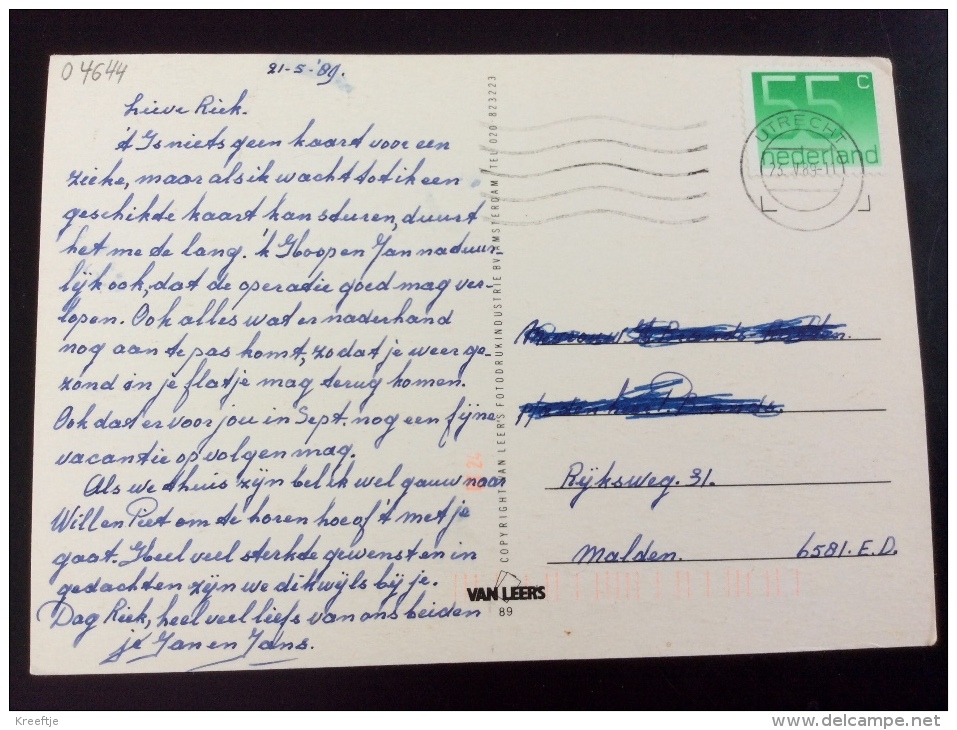 04644
21-5-'89.
Lieve Riek.
't Is niets geen kaart voor een
zieke, maar als ik wacht tot ik een
geschikte kaart kan sturen, duurt
het me de lang. 'k Hoop en Jan naduur-
lijk ook, dat de operatie goed mag ver-
lopen. Ook alles wat er naderhand
nog aan te pas komt, zodat je weer ge-
zond in je flatje mag terug komen.
Ook dat er voor jou in Sept. nog een fijne
vacantie op volgen mag.
Als we thuis zijn bel ik wel gauw naar
Will en Piet om te horen hoe of 't met je
gaat. Heel veel sterkte gewenst en in
gedachten zijn we dikwijls bij je.
Dag Riek, heel veel liefs van ons beiden
je Jan en Jans.
COPYRIGHT VAN LEER'S FOTODRUKINDUSTRIE BV AMSTERDAM TEL 020 823223
VAN LEER'S
89
55 c
nederland
UTRECHT
23. V.89-11
Rijksweg. 31.
Malden. 6581. E.D.
Kreeftje
http://www.delcampe.net